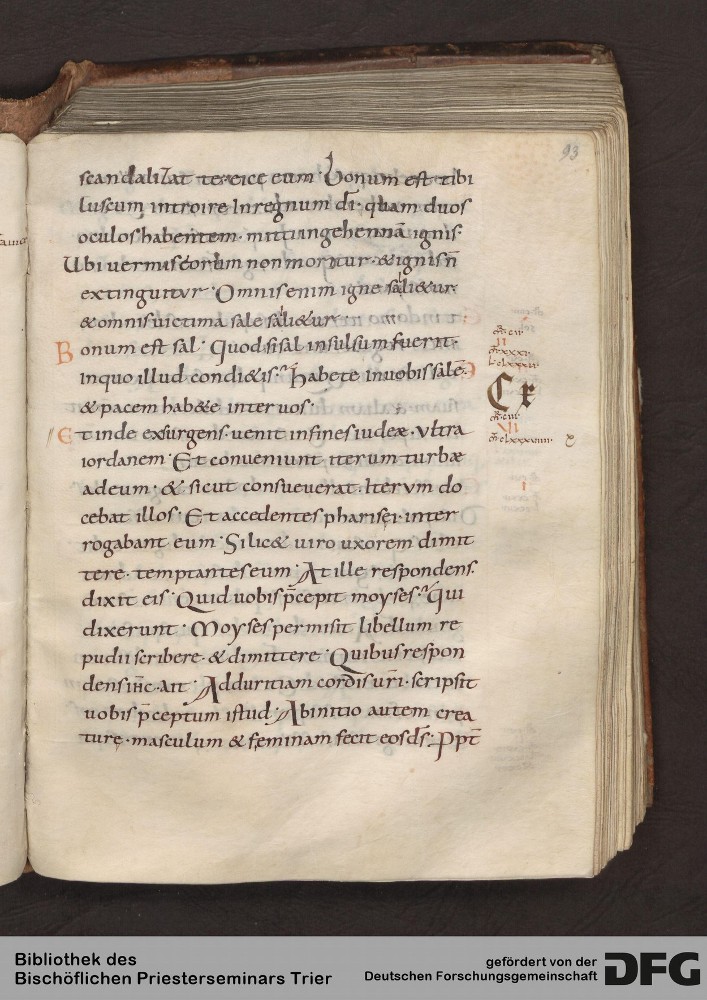 93
scandalizat te eice eum· Bonum est tibi
luscum introire In regnum dī· quam duos
oculos habentem· mitti in gehennā ignis·
Ubi vermis eorum non moritur· & ignis n̄
extinguitur· Omnis enim igne sali&ur
& omnis victima sale sali&ur·
Bonum est sal· Quod si sal insulsum fuerit·
in quo illud condi&is· Habete in vobis salē·
& pacem hab&e inter vos·
Et inde exsurgens· venit in fines iudeæ· ultra
iordanem· Et conveniunt iterum turbæ
ad eum· & sicut consueverat· Iterum do
cebat illos· Et accedentes pharisęi· inter
rogabant eum· Si lic& uiro uxorem dimit
tere· temptantes eum· At ille respondens·
dixit eis· Quid uobis p̄cepit moyses· qui
dixerunt· Moyses permisit libellum re
pudii scribere· & dimittere· Quibus respon
dens ih̄c· ait· Ad duritiam cordis ur̄i· scripsit
uobis p̄ceptum istud· Ab initio autem crea
turę· masculum & feminam fecit eos ds̄· Ppt̄
Bibliothek des
Bischöflichen Priesterseminars Trier
gefördert von der
Deutschen Forschungsgemeinschaft
DFG